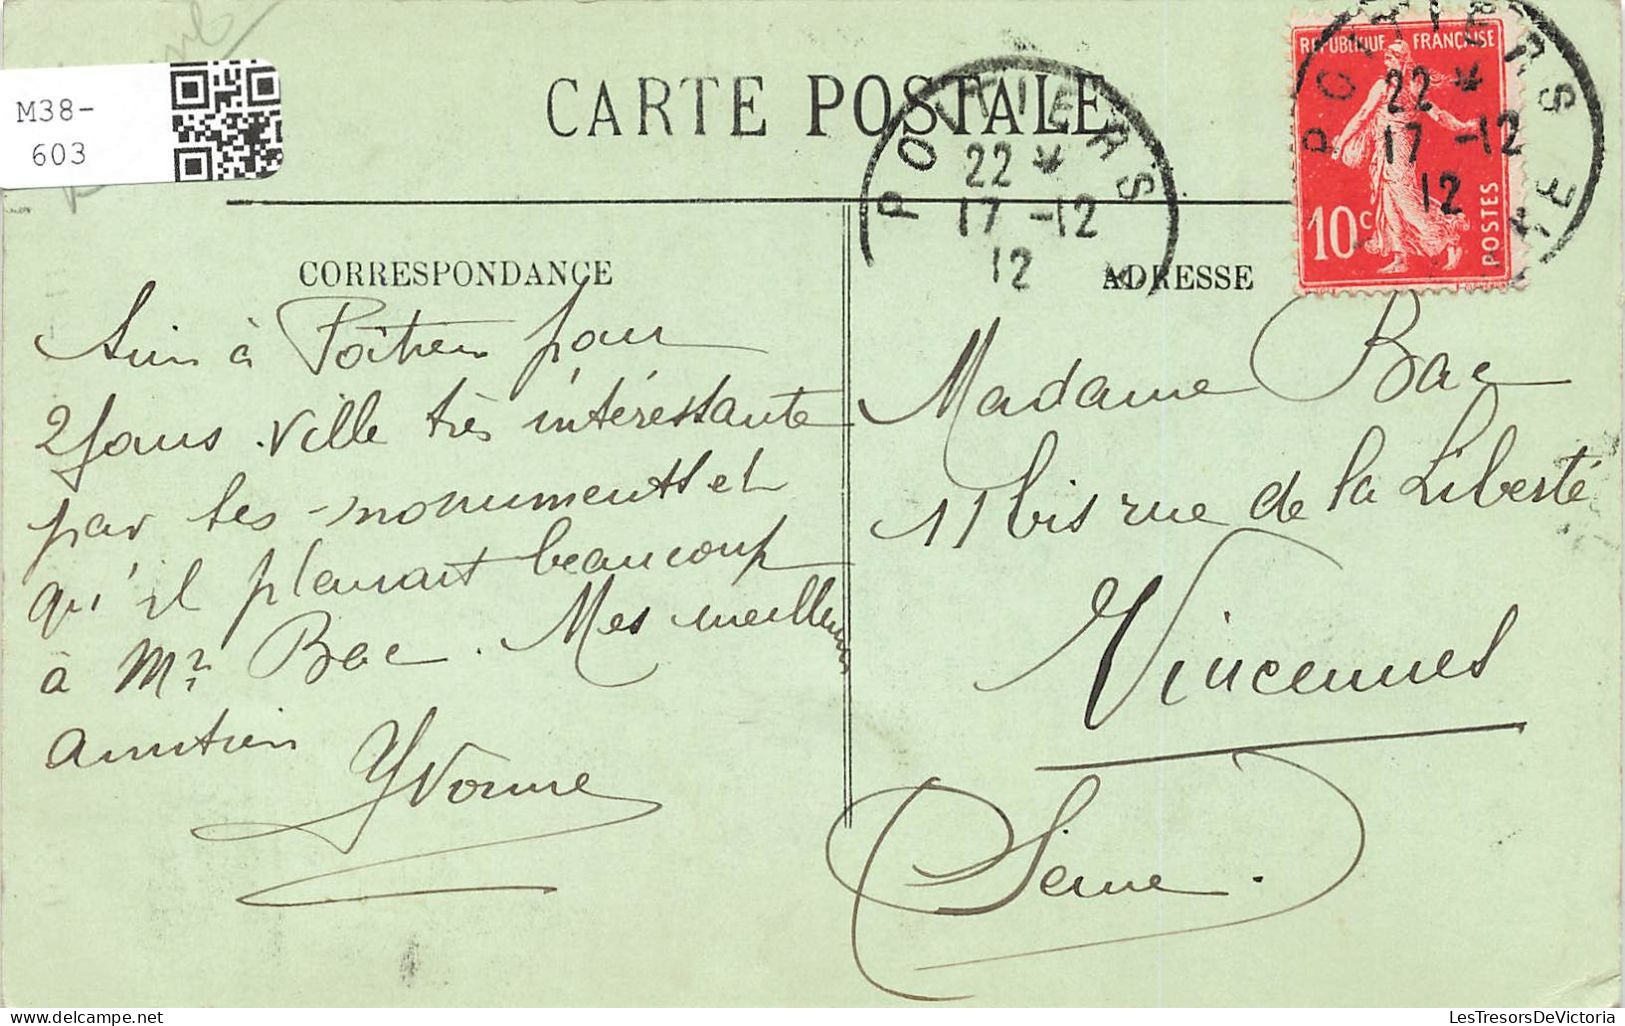 M38-
603
CARTE POSTALE
REPUBLIQUE FRANÇAISE
10c
POSTES
POITIERS
22 *
17 -12
12
POITIERS
22 *
17 -12
12
CORRESPONDANCE
Suis à Poitiers pour
2 jours. Ville très intéressante
par ses monuments et
qu'il plairait beaucoup
à Mr Bac. Mes meilleures
amitiés
Yvonne
ADRESSE
Madame Bac
11 bis rue de la Liberté
Vincennes
Seine.
Delcampe.net
LesTresorsDeVictoria